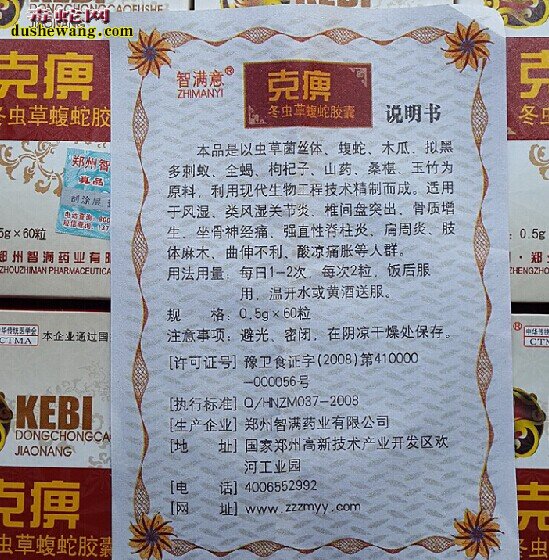 毒蛇网
dushewang.com
DONGCHONGCAOFUSHE
克痹
冬虫草蝮蛇胶
郑州智
真品
刮涂层
5g×60粒
郑州智满药业有
ZHOUZHIMAN PHARMACEUTICAL
中华传统医学会
CTMA
本企业通过国
KEBI
DONGCHONGCA
JIAONANG
克痹
智满意®
ZHIMANYI
克痹
冬虫草蝮蛇胶囊
说明书
本品是以虫草菌丝体、蝮蛇、木瓜、拟黑
多刺蚁、全蝎、枸杞子、山药、桑椹、玉竹为
原料，利用现代生物工程技术精制而成。适用
于风湿、类风湿关节炎、椎间盘突出、骨质增
生、坐骨神经痛、强直性脊柱炎、肩周炎、肢
体麻木、曲伸不利、酸凉痛胀等人群。
用法用量：每日1-2次，每次2粒，饭后服
用，温开水或黄酒送服。
规　格：0.5g×60粒
注意事项：避光、密闭，在阴凉干燥处保存。
[许可证号] 豫卫食证字(2008)第410000
-000056号
[执行标准] Q/HNZM037-2008
[生产企业] 郑州智满药业有限公司
[地　址] 国家郑州高新技术产业开发区欢
河工业园
[电　话] 4006552992
[网　址] www.zzzmyy.com
0.5
郑州
ZHOU
中华传统
CTM
克